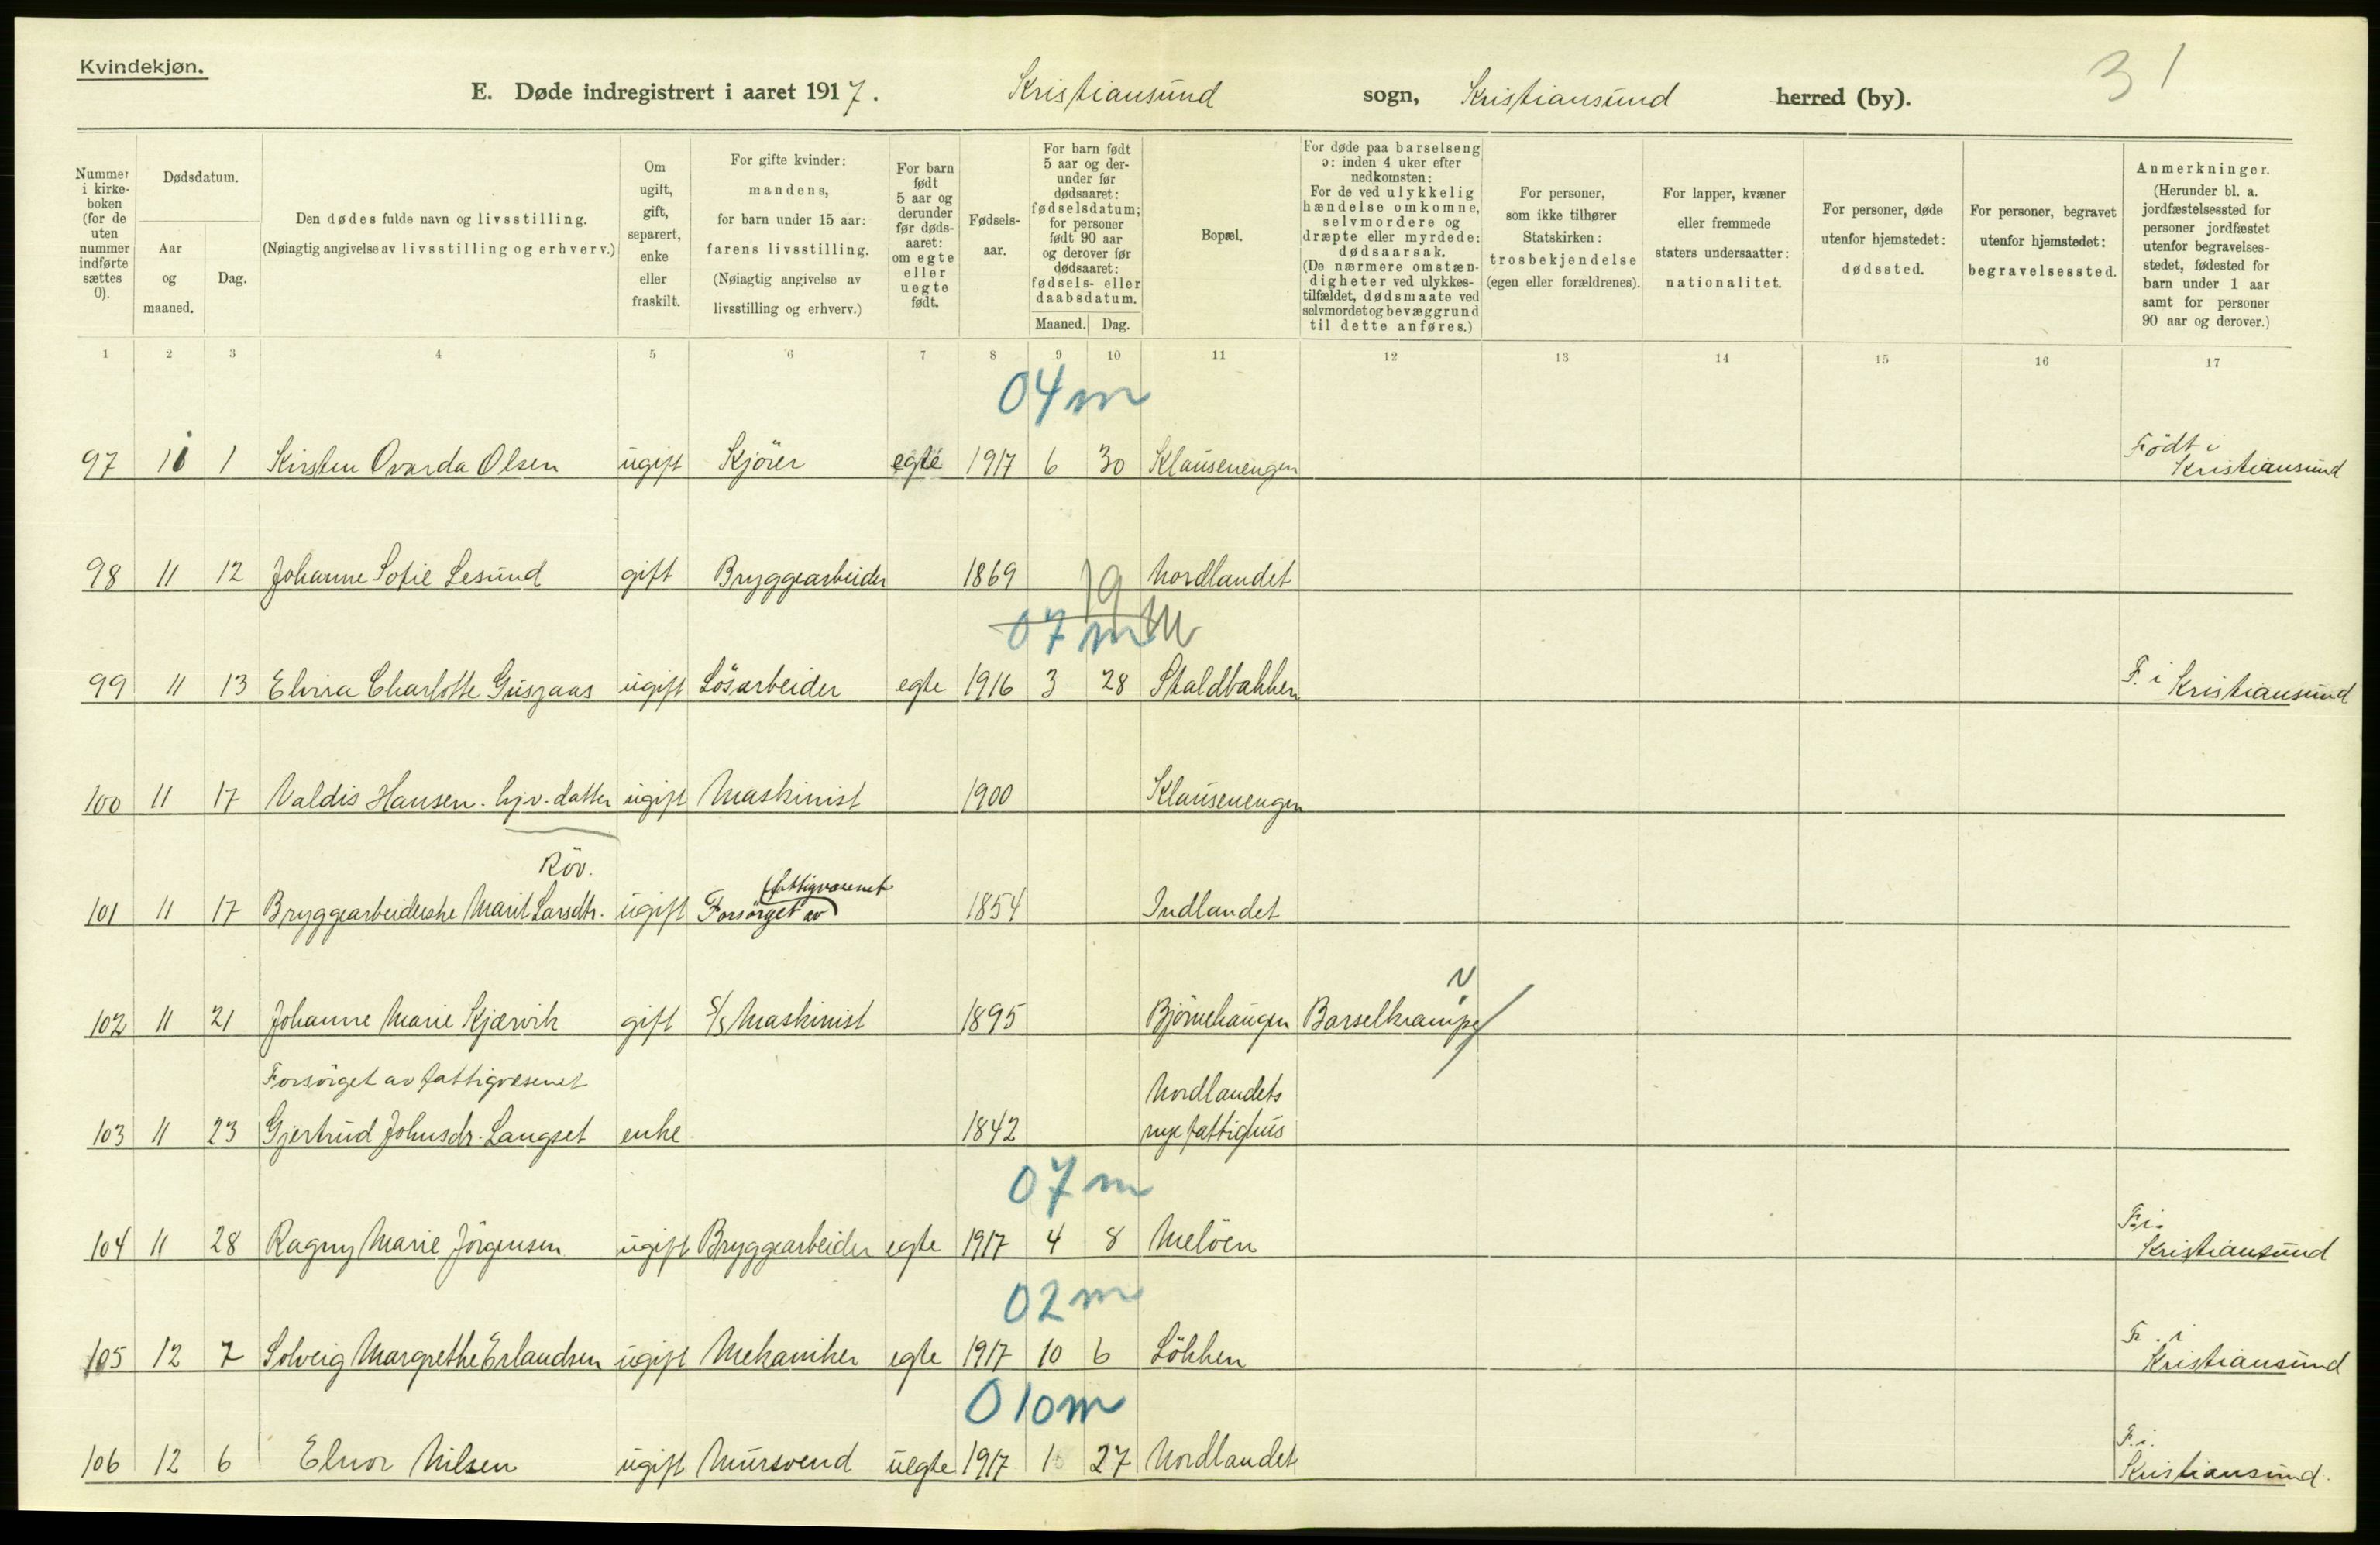 Kvindekjøn.
31
E. Døde indregistrert i aaret 1917. Kristiansund sogn, Kristiansund herred (by).
Nummer i kirke-boken (for de uten nummer indførte sættes 0).
Dødsdatum.
Aar og maaned.
Dag.
Den dødes fulde navn og livsstilling. (Nøiagtig angivelse av livsstilling og erhverv.)
Om ugift, gift, separert, enke eller fraskilt.
For gifte kvinder: mandens, for barn under 15 aar: farens livsstilling. (Nøiagtig angivelse av livsstilling og erhverv.)
For barn født 5 aar og derunder før døds-aaret: om egte eller uegte født.
Fødsels-aar.
For barn født 5 aar og der-under før dødsaaret: fødselsdatum; for personer født 90 aar og derover før dødsaaret: fødsels- eller daabsdatum.
Maaned. Dag.
Bopæl.
For døde paa barselseng ɔ: inden 4 uker efter nedkomsten: For de ved ulykkelig hændelse omkomne, selvmordere og dræpte eller myrdede: dødsaarsak. (De nærmere omstæn-digheter ved ulykkes-tilfældet, dødsmaate ved selvmordet og bevæggrund til dette anføres.)
For personer, som ikke tilhører Statskirken: trosbekjendelse (egen eller forældrenes).
For lapper, kvæner eller fremmede staters undersaatter: nationalitet.
For personer, døde utenfor hjemstedet: dødssted.
For personer, begravet utenfor hjemstedet: begravelsessted.
Anmerkninger. (Herunder bl. a. jordfæstelsessted for personer jordfæstet utenfor begravelses-stedet, fødested for barn under 1 aar samt for personer 90 aar og derover.)
1 2 3 4 5 6 7 8 9 10 11 12 13 14 15 16 17
04 m
97 11 1 Kirsten Ovarda Olsen ugift Kjörer egte 1917 6 30 Klausenengen Födt i Kristiansund
98 11 12 Johanne Sofie Lesund gift Bryggearbeider 1869 Nordlandet
07 m
99 11 13 Elvira Charlotte Gusgaas ugift Lösarbeider egte 1916 3 28 Staldbakken F. i Kristiansund
100 11 17 Valdis Hansen. hjv. datter ugift Maskinist 1900 Klausenengen
Röv.
101 11 17 Bryggearbeiderske Marit Larsdtr. ugift Forsörget av fattigvæsenet 1854 Indlandet
102 11 21 Johanne Marie Kjærvik gift S/S Maskinist 1895 Björnehaugen Barselkrampe
Forsörget av fattigvæsenet Nordlandets
103 11 23 Gjertrud Johnsdr. Langset enke 1842 nye fattighus
07 m
104 11 28 Ragny Marie Jörgensen ugift Bryggearbeider egte 1917 4 8 Melöen F. i. Kristiansund
02 m
105 12 7 Solveig Margrethe Erlandsen ugift Mekaniker egte 1917 10 6 Lökken F. i Kristiansund
010 m
106 12 6 Elnor Nilsen ugift Mursvend uegte 1917 1 27 Nordlandet F. i. Kristiansund.